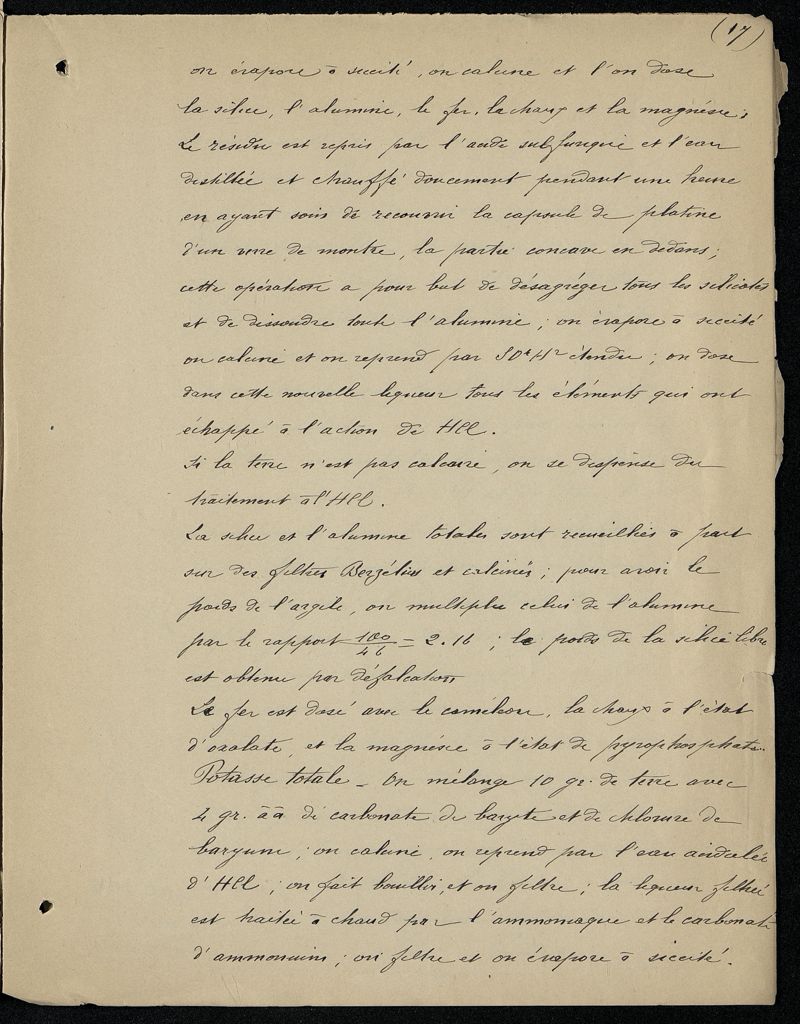 (17)
on évapore à siccité, on calcine et l'on dose
la silice, l'alumine, le fer, la chaux et la magnésie;
Le résidu est repris par l'acide sulfurique et l'eau
distillée et chauffé doucement pendant une heure
en ayant soin de recouvrir la capsule de platine
d'un verre de montre, la partie concave en dedans;
cette opération a pour but de désagréger tous les silicates
et de dissoudre toute l'alumine; on évapore à siccité
on calcine et on reprend par SO⁴H² étendu; on dose
dans cette nouvelle liqueur tous les éléments qui ont
échappé à l'action de HCl.
Si la terre n'est pas calcaire, on se dispense du
traitement à l'HCl.
La silice et l'alumine totales sont recueillies à part
sur des filtres Berzélius et calcinés; pour avoir le
poids de l'argile, on multiplie celui de l'alumine
par le rapport 100/46 = 2.16; le poids de la silice libre
est obtenu par défalcation
Le fer est dosé avec le caméléon, la chaux à l'état
d'oxalate, et la magnésie à l'état de pyrophosphate.
Potasse totale _ On mélange 10 gr. de terre avec
4 gr. āā de carbonate de baryte et de chlorure de
baryum; on calcine, on reprend par l'eau acidulée
d'HCl; on fait bouillir, et on filtre; la liqueur filtrée
est traitée à chaud par l'ammoniaque et le carbonate
d'ammonium; on filtre et on évapore à siccité.